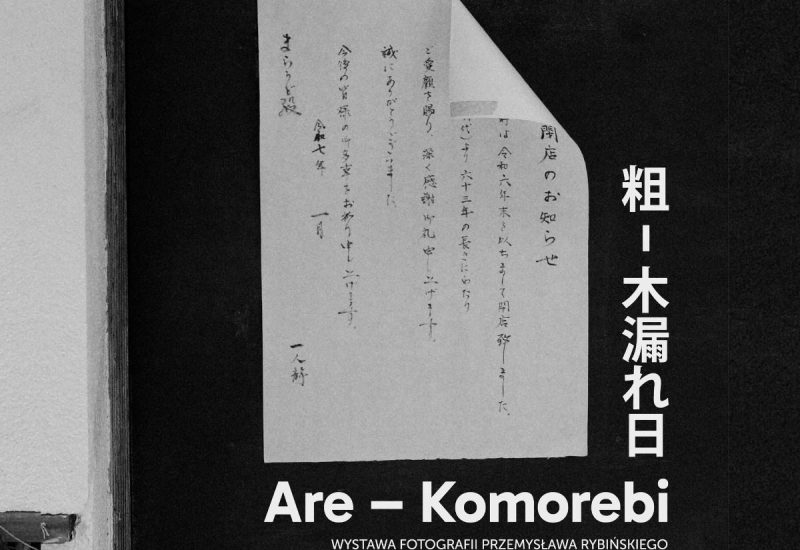 閉店のお知らせ
は 令和六年末を以ちまして閉店致しました。
代)より 六十三年の長きにわたり
ご愛顧を賜り、深く感謝御礼申し上げます。
誠にありがとうございました。
今後の皆様の御多幸をお祈り申し上げます。
令和七年 一月
一人静
まらうど
粗 - 木漏れ日
Are – Komorebi
WYSTAWA FOTOGRAFII PRZEMYSŁAWA RYBIŃSKIEGO